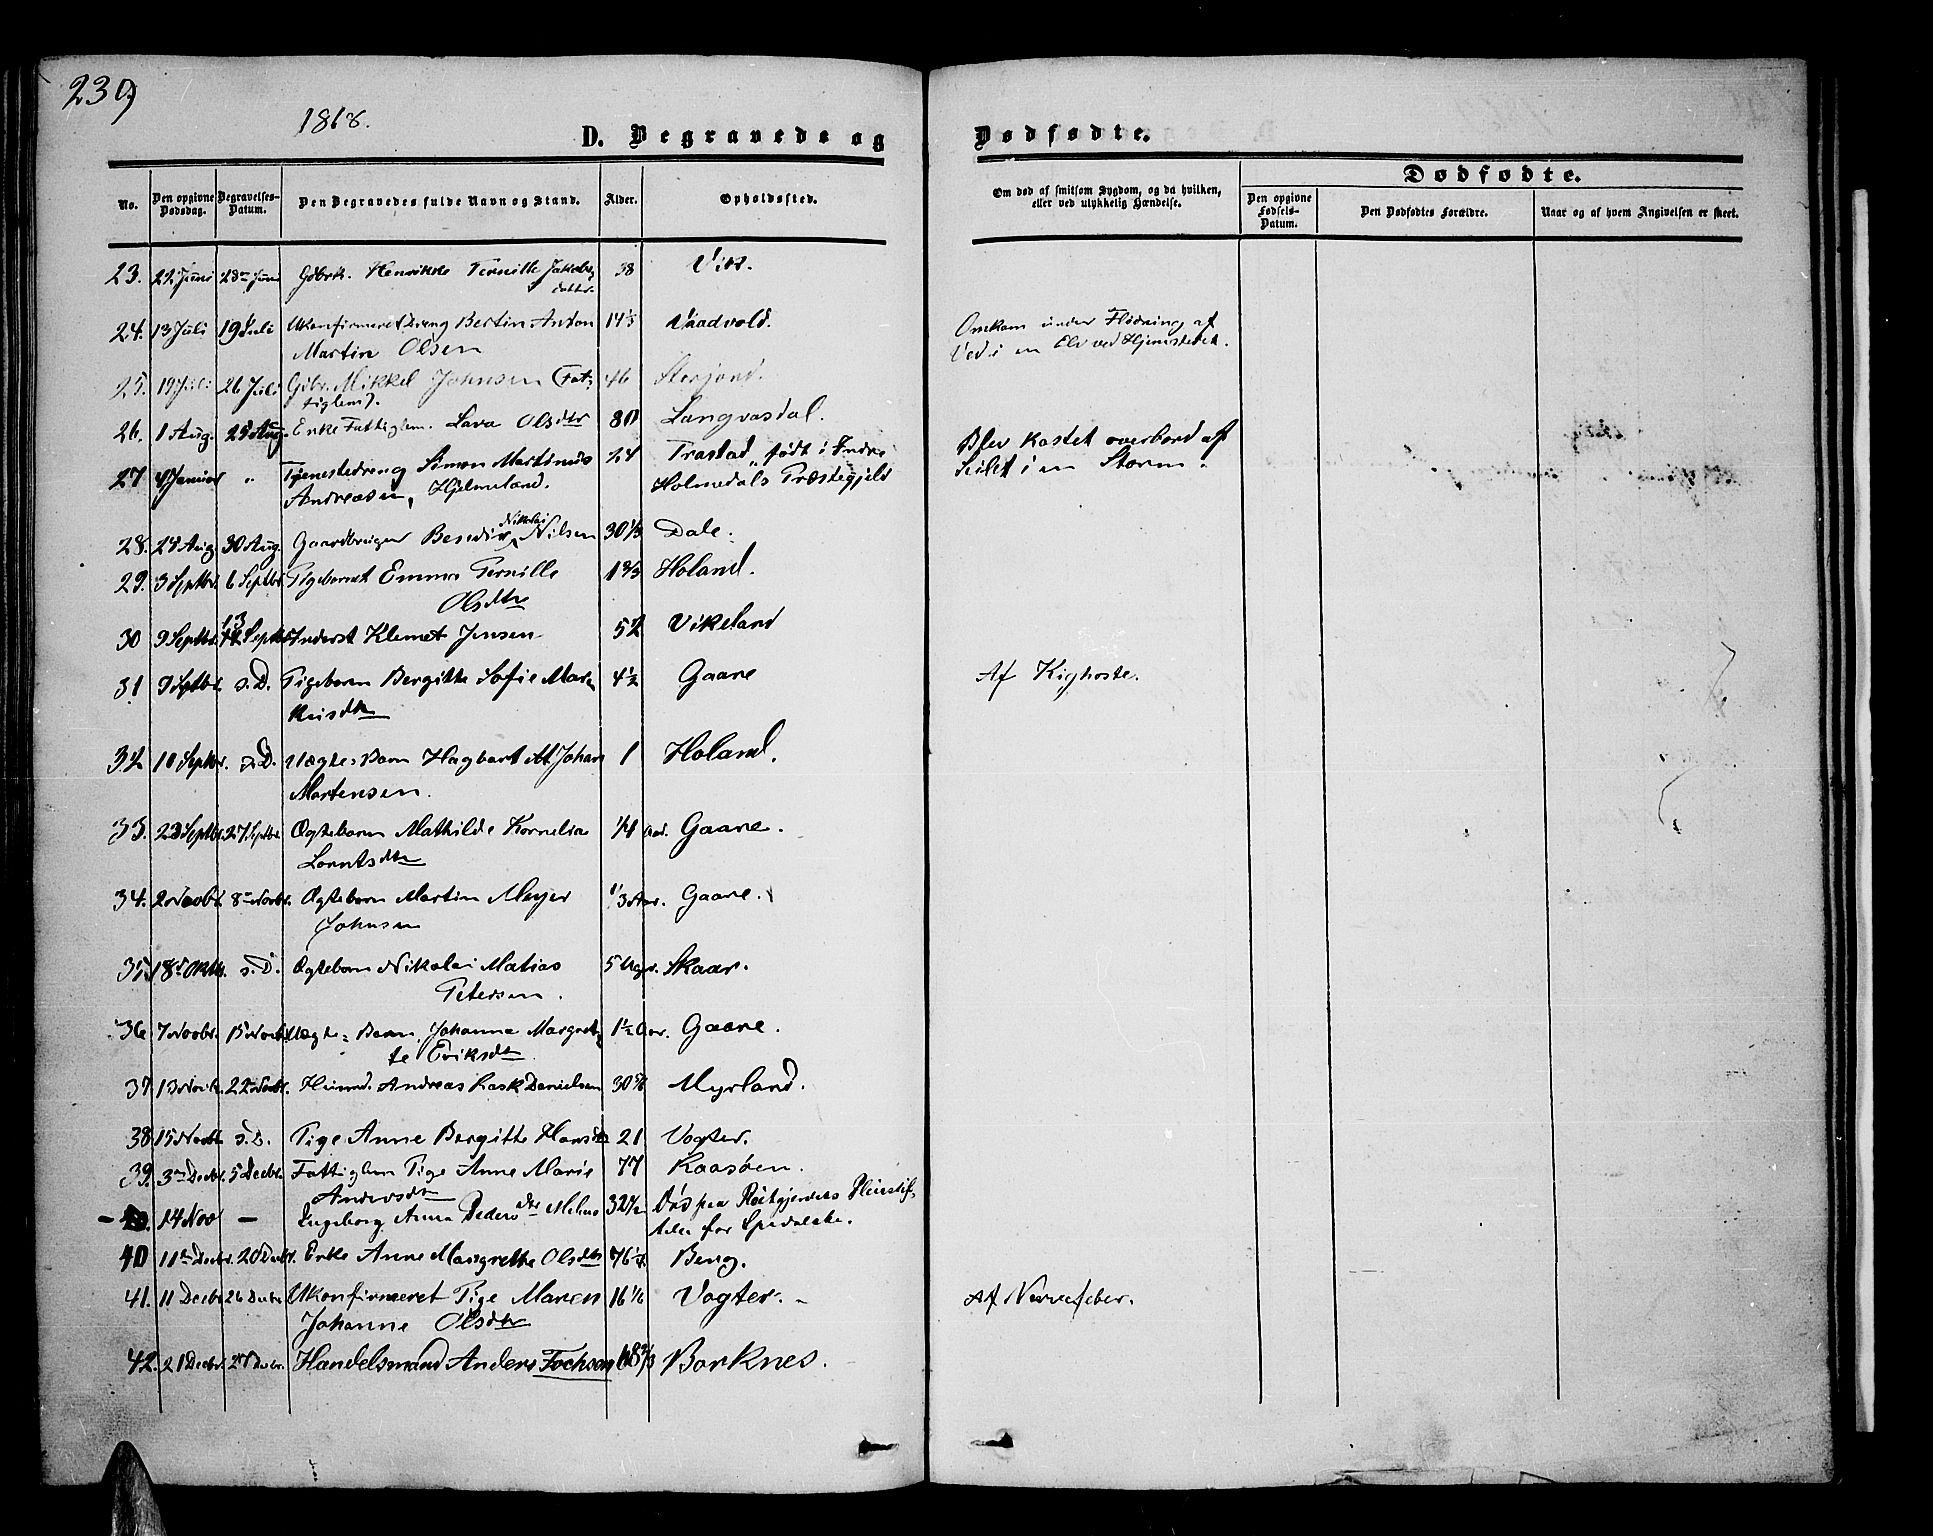 239
1868.
D. Begravede og Dødfødte.
No. Den opgivne Dødsdag. Begravelses-Datum. Den Begravedes fulde Navn og Stand. Alder. Opholdssted. Om død af smitsom Sygdom, og da hvilken, eller ved ulykkelig Hændelse. Dødfødte.
Den opgivne Fødsels-Datum. Den Dødfødtes Forældre. Naar og af hvem Angivelsen er skeet.
23. 22 Juni 28de Juni Gbrk. Henrikke Pernille Jakobs 38 Vik.
datter
24. 13 Juli 19 Juli Ukonfirmeret Dreng Bertin Anton 14⅓ Vaadvold. Omkom under Flødning af
Martin Olsen Ved i en Elv ved Hjemstedet.
25. 19 Juli 26 Juli Gbr. Mikkel Johnsen (Fat- 46 Storjord.
tiglem).
26. 1 Aug. 23 Aug. Enke Fattiglem. Lava Olsdtr 80 Langvasdal.
27 8 Januar " Tjenestedreng Simon Martinus 24 Trastad, født i Indre Blev kastet overbord af
Andreasen, Hjelmeland. Holmedals Præstegjeld Seilet i en Storm.
28. 24 Aug. 30 Aug. Gaardbruger Benedik Nikolai Nilsen 30⅓ Dale.
29. 3 Septbr. 6 Septbr. Pigebarnet Emma Pernille 1⅔ Holand.
Olsdtr
30 9 Septbr. 13 Septbr Inderst Klemet Jensen 52 Vikeland
31 9 Septbr. s.D. Pigebarn Bergitte Sofie Mare 4½ Gaare Af Kighoste.
kusdtr
32 10 Septbr. s.D. Uægte-Barn Hagbart M. Johan 1 Holand.
Mortensen.
33. 23 Septbr. 27 Septbr Ægtebarn Mathilde Kornelia ¼ Aar. Gaare.
Lorntsdtr
34. 2 Novbr. 8de Novbr. Ægtebarn Martin Meyer ⅓ Aar. Gaare.
Johnsen
35. 18de Oktb. s.D. Ægtebarn Nikolai Matias 5 Uger. Skaar.
Petersen.
36 7 Novbr. 15 Novbr. Uægte-Barn, Johanna Margret- 1½ Aar. Gaare.
te Eriksdtr
37. 13 Novbr. 22 Novbr. Huusmd. Andreas Rask Danielsen 30 Myrland.
38 15 Novbr s.D. Pige Anne Bergitte Hansdtr 21 Vogter.
39. 3die Decbr. 5 Decbr. Fattiglem Pige Anne Marie 77 Kaasøen.
Andersdtr
14 Nov — Ingeborg Anna Pedersdtr Melnes 32½ Død paa Reitgjerdets Pleiestif-
telse for Spedalske.
40 11te Decbr. 20 Decbr. Enke Anne Margrethe Olsdtr 76¼ Berg.
41. 11 Decbr 26 Decbr Ukonfirmeret Pige Maren 16⅙ Vogter. Af Nervefeber.
Johanne Olsdtr
42. 21 Decbr. Decbr. Handelsmand Anders Fochsen 68⅔ Borknes.